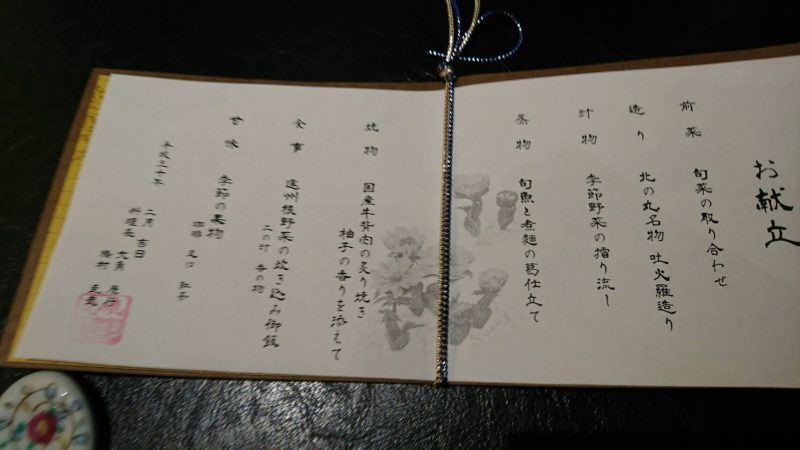 お献立
前菜 旬菜の取り合わせ
造り 北の丸名物 吐火羅造り
汁物 季節野菜の擂り流し
蒸物 旬魚と煮麺の葛仕立て
焼物 国産牛背肉の炙り焼き
柚子の香りを添えて
食事 遠州根野菜の炊き込み御飯
二の汁 香の物
甘味 季節の菓物
平成三十年
二月 吉日
料理長